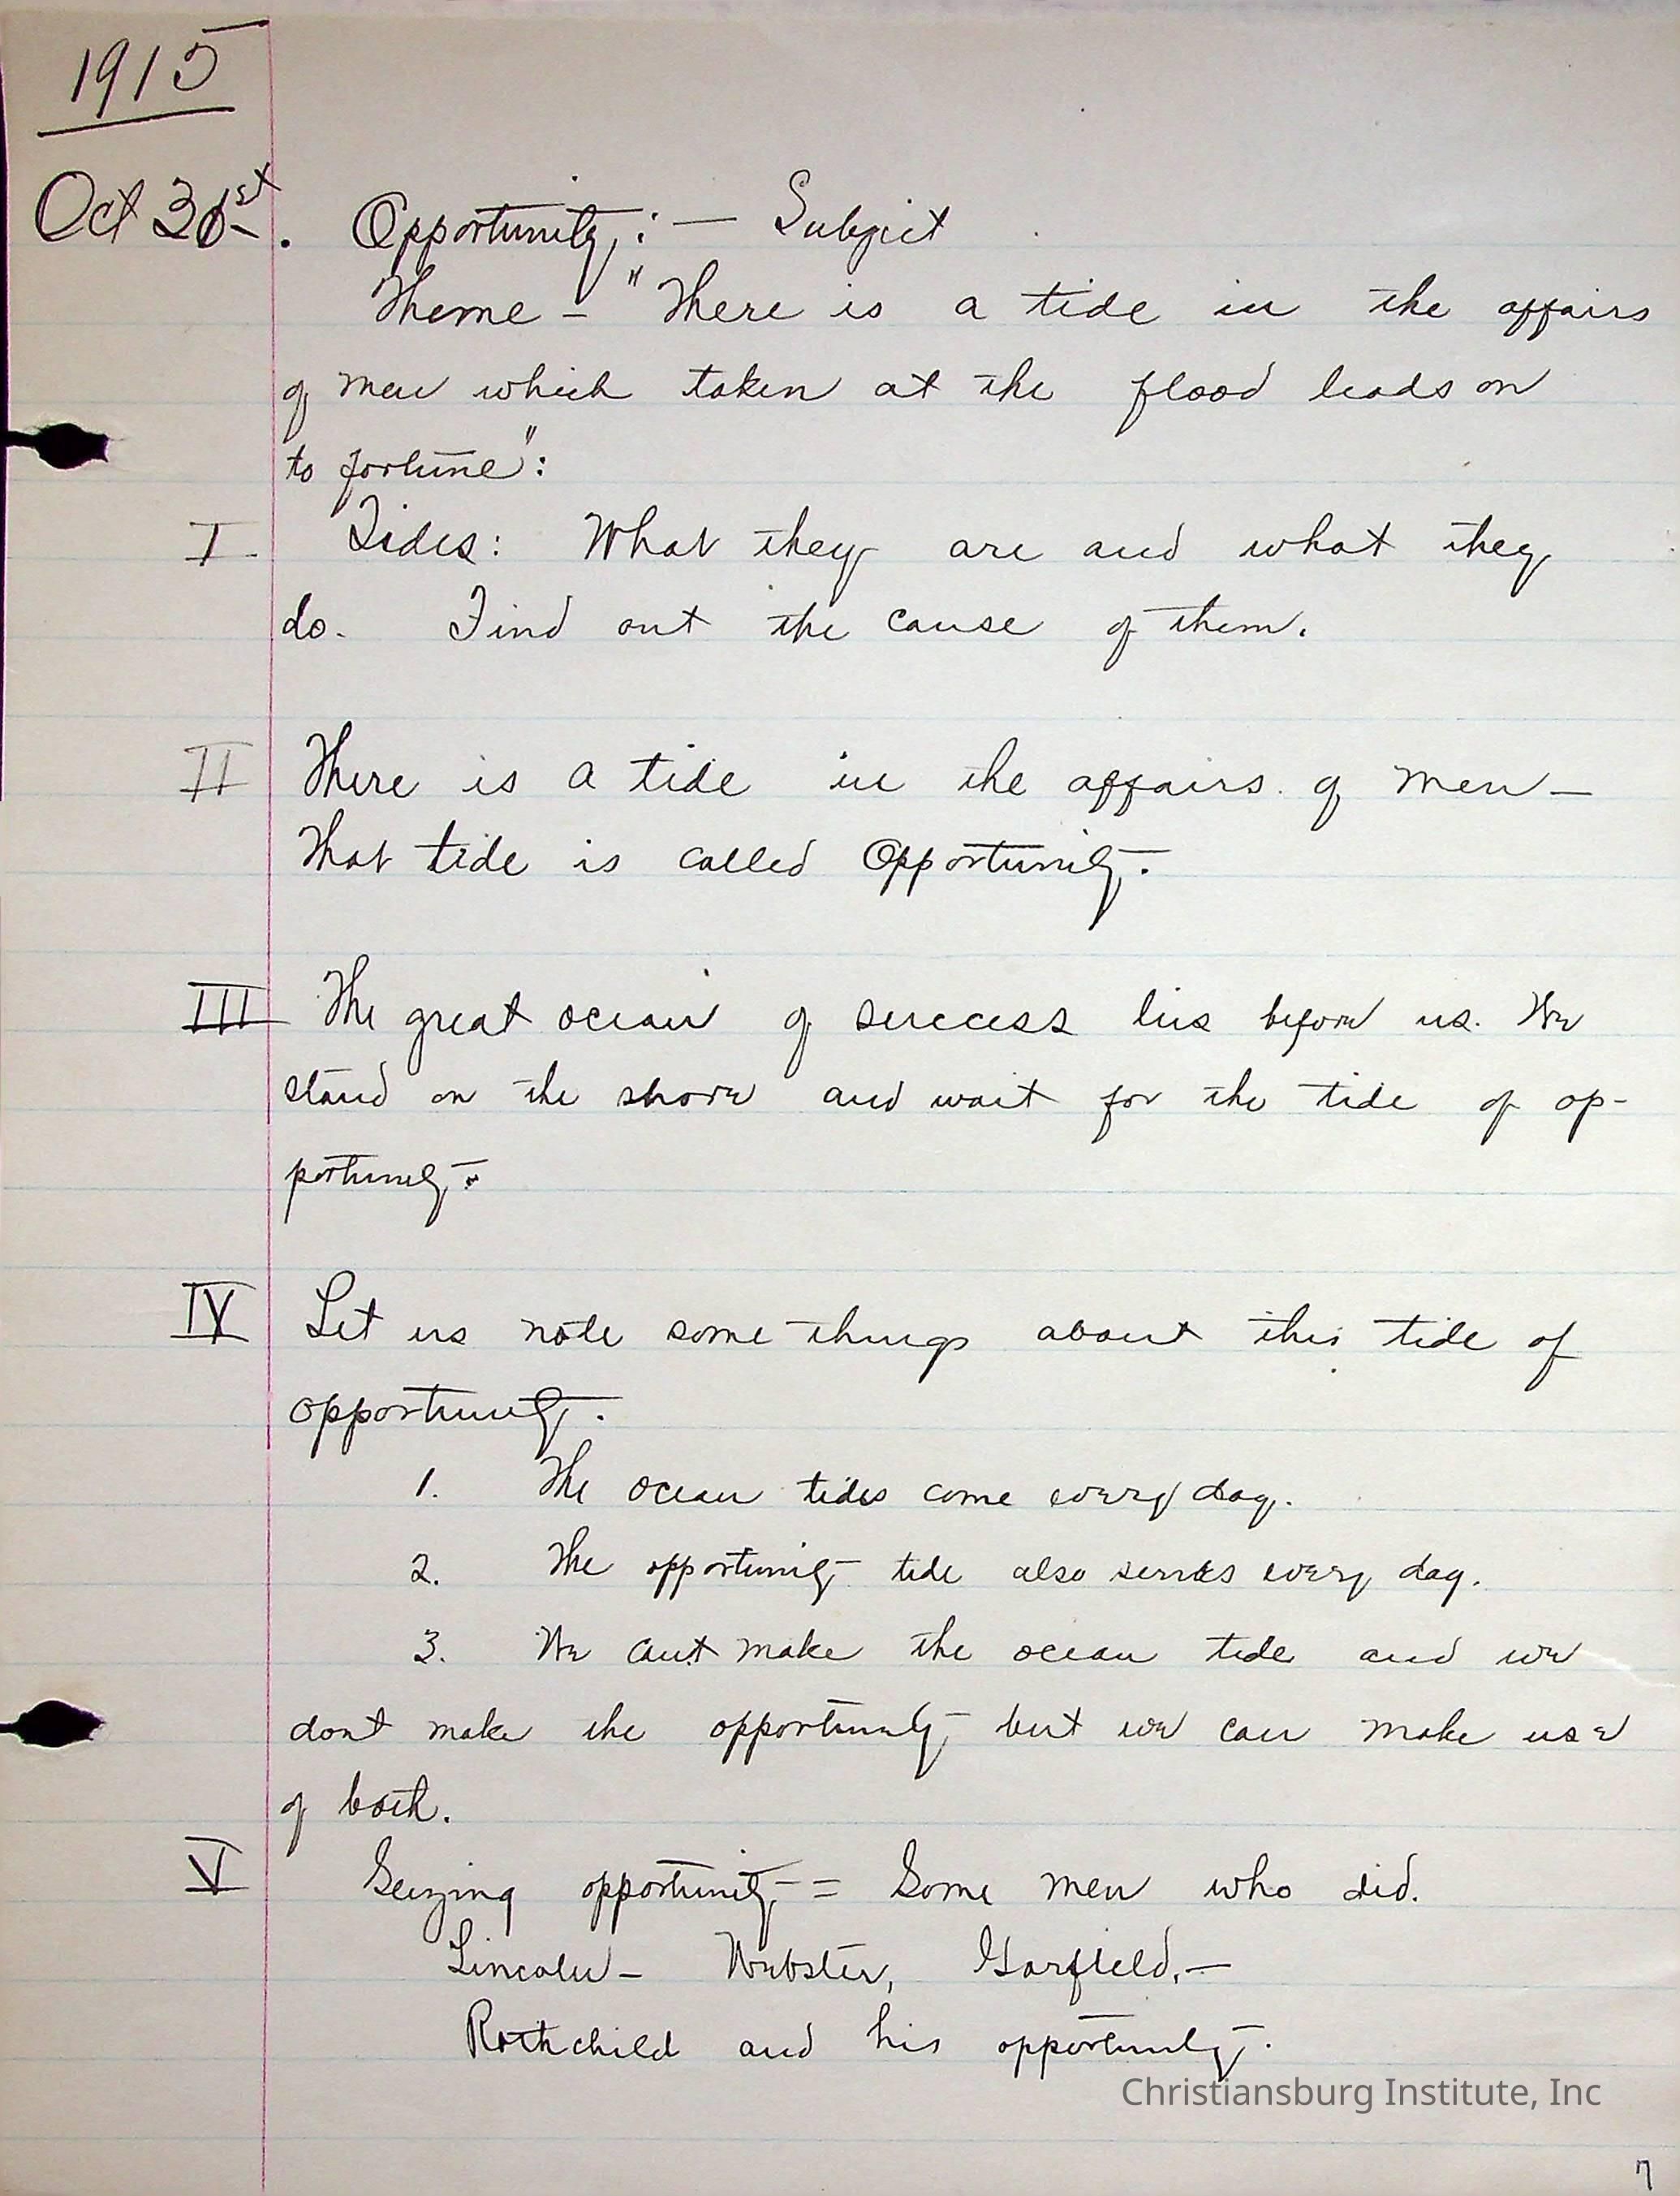 1915
Oct 31st. Opportunity: — Subject
Theme — "There is a tide in the affairs
of men which taken at the flood leads on
to fortune":
I. Tides: What they are and what they
do. Find out the cause of them.
II There is a tide in the affairs of men —
That tide is called Opportunity.
III The great ocean of success lies before us. We
stand on the shore and wait for the tide of op-
portunity.
IV Let us note some things about this tide of
opportunity.
1. The ocean tides come every day.
2. The opportunity tide also serves every day.
3. We can't make the ocean tide and we
dont make the opportunity but we can make use
of both.
V Seizing opportunity = Some men who did.
Lincoln — Webster, Garfield, —
Rothchild and his opportunity.
Christiansburg Institute, Inc
7